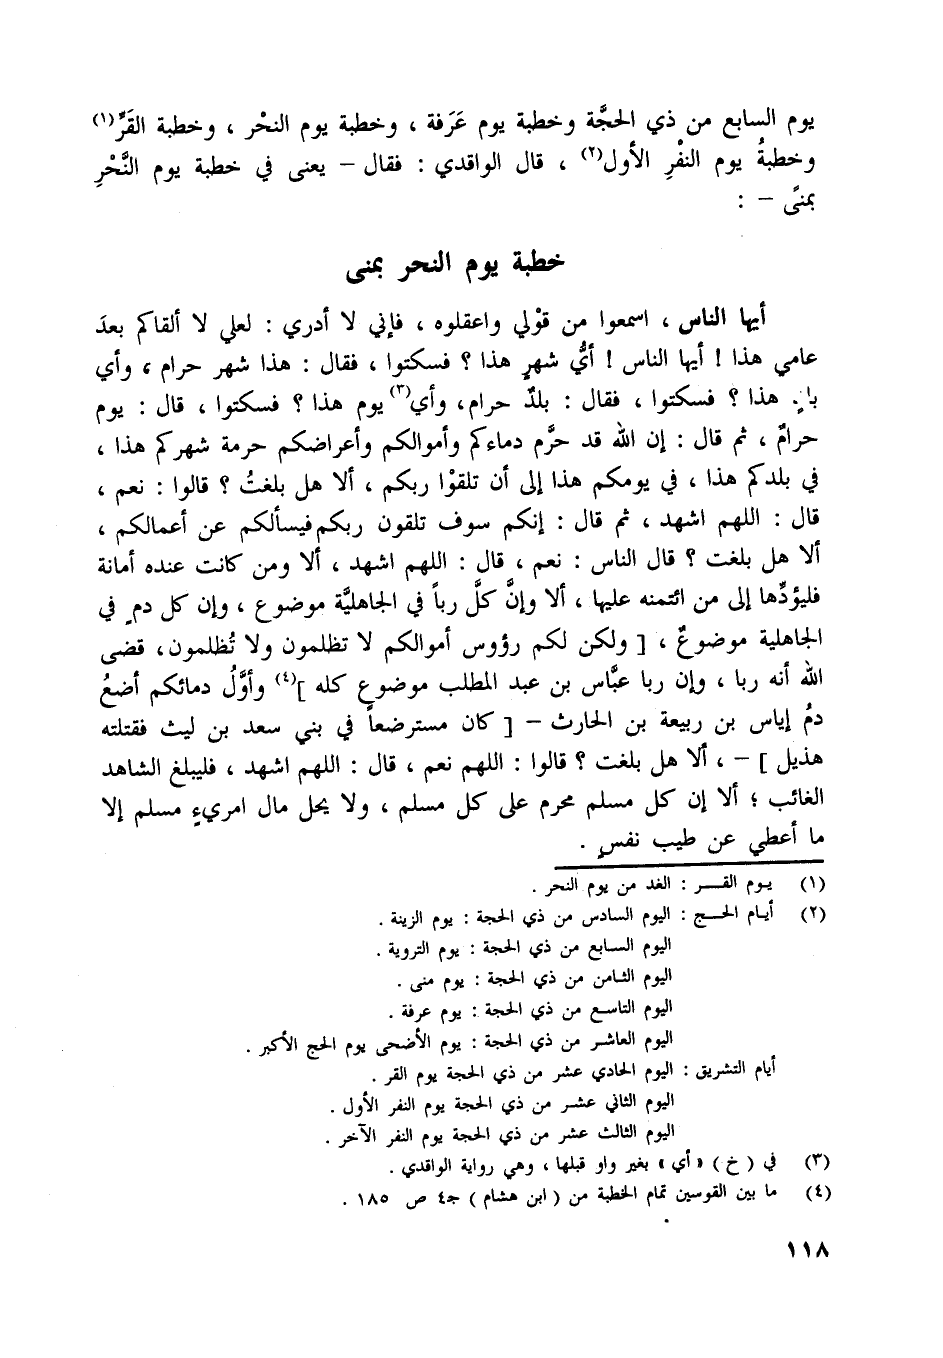 يوم السابع من ذي الحجَّة وخطبة يوم عَرَفة ، وخطبة يوم النحْر ، وخطبة القَرِّ(١)
وخطبةُ يوم النفْرِ الأول(٢) ، قال الواقدي : فقال – يعنى في خطبة يوم النَّحْرِ
بمنًى – :
خطبة يوم النحر بمنى
أيها الناس ، اسمعوا من قوْلي واعقلوه ، فإني لا أدري : لعلي لا ألقاكم بعدَ
عامي هذا ! أيها الناس ! أيُّ شهرٍ هذا ؟ فسكتوا ، فقال : هذا شهر حرام ، وأي
هذا ؟ فسكتوا ، فقال : بلدٌ حرام، وأي(٣) يوم هذا ؟ فسكتوا ، قال : يوم
حرامٌ ، ثم قال : إن الله قد حرَّم دماءكم وأموالكم وأعراضكم حرمة شهركم هذا ،
في بلدكم هذا ، في يومكم هذا إلى أن تلقوْا ربكم ، ألا هل بلغتُ ؟ قالوا : نعم ،
قال : اللهم اشهد ، ثم قال : إنكم سوف تلقون ربكم فيسألكم عن أعمالكم ،
ألا هل بلغت ؟ قال الناس : نعم ، قال : اللهم اشهد ، ألا ومن كانت عنده أمانة
فليؤدِّها إلى من ائتمنه عليها ، ألا وإنَّ كلَّ رباً في الجاهليَّة موضوع ، وإن كل دمٍ في
الجاهلية موضوعٌ ، [ ولكن لكم رؤوس أموالكم لا تظلمون ولا تُظلمون، قضى
الله أنه ربا ، وإن ربا عبَّاس بن عبد المطلب موضوع كله ](٤) وأوَّلُ دمائكم أضعُ
دمُ إياس بن ربيعة بن الحارث – [ كان مسترضعاً في بني سعد بن ليث فقتلته
هذيل ] – ، ألا هل بلغت ؟ قالوا : اللهم نعم ، قال : اللهم اشهد ، فليبلغ الشاهد
الغائب ؛ ألا إن كل مسلم محرم على كل مسلم ، ولا يحل مال امريءٍ مسلم إلا
ما أعطي عن طيب نفسٍ .
(١) يوم القـــر : الغد من يوم النحر .
(٢) أيام الحـــج : اليوم السادس من ذي الحجة : يوم الزينة .
اليوم السابع من ذي الحجة : يوم التروية .
اليوم الثامن من ذي الحجة : يوم منى .
اليوم التاسع من ذي الحجة : يوم عرفة .
اليوم العاشر من ذي الحجة : يوم الأضحى يوم الحج الأكبر .
أيام التشريق : اليوم الحادي عشر من ذي الحجة يوم القر .
اليوم الثاني عشر من ذي الحجة يوم النفر الأول .
اليوم الثالث عشر من ذي الحجة يوم النفر الآخر .
(٣) في ( خ ) « أي » بغير واو قبلها ، وهي رواية الواقدي .
(٤) ما بين القوسين تمام الخطبة من ( ابن هشام ) جـ٤ ص ١٨٥ .
١١٨